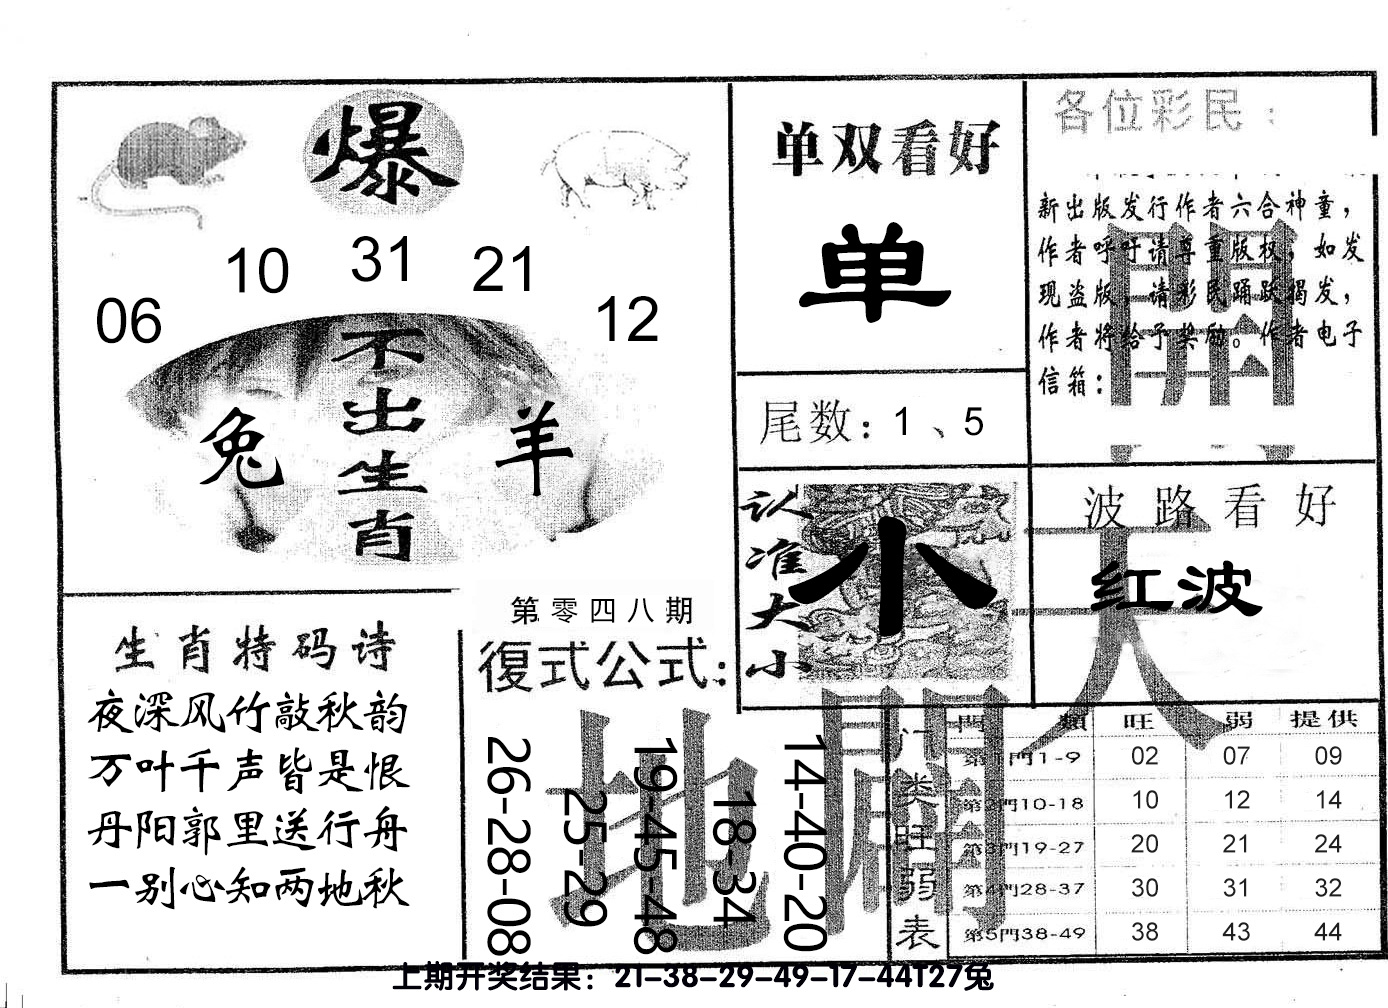 爆
10 31 21
06 12
不出生肖
兔 羊
单双看好
单
尾数：1、5
认准大小
小
各位彩民：
新出版发行作者六合神童，
作者呼吁请尊重版权，如发
现盗版，请彩民踊跃揭发，
作者将给予奖励。作者电子
信箱：
開
波路看好
红波
天
生肖特码诗
夜深风竹敲秋韵
万叶千声皆是恨
丹阳郭里送行舟
一别心知两地秋
第零四八期
復式公式：
26-28-08
25-29
19-45-48
18-34
14-40-20
地
门类旺弱表
門 類 旺 弱 提供
第1門1-9 02 07 09
第2門10-18 10 12 14
第3門19-27 20 21 24
第4門28-37 30 31 32
第5門38-49 38 43 44
上期开奖结果：21-38-29-49-17-44T27兔